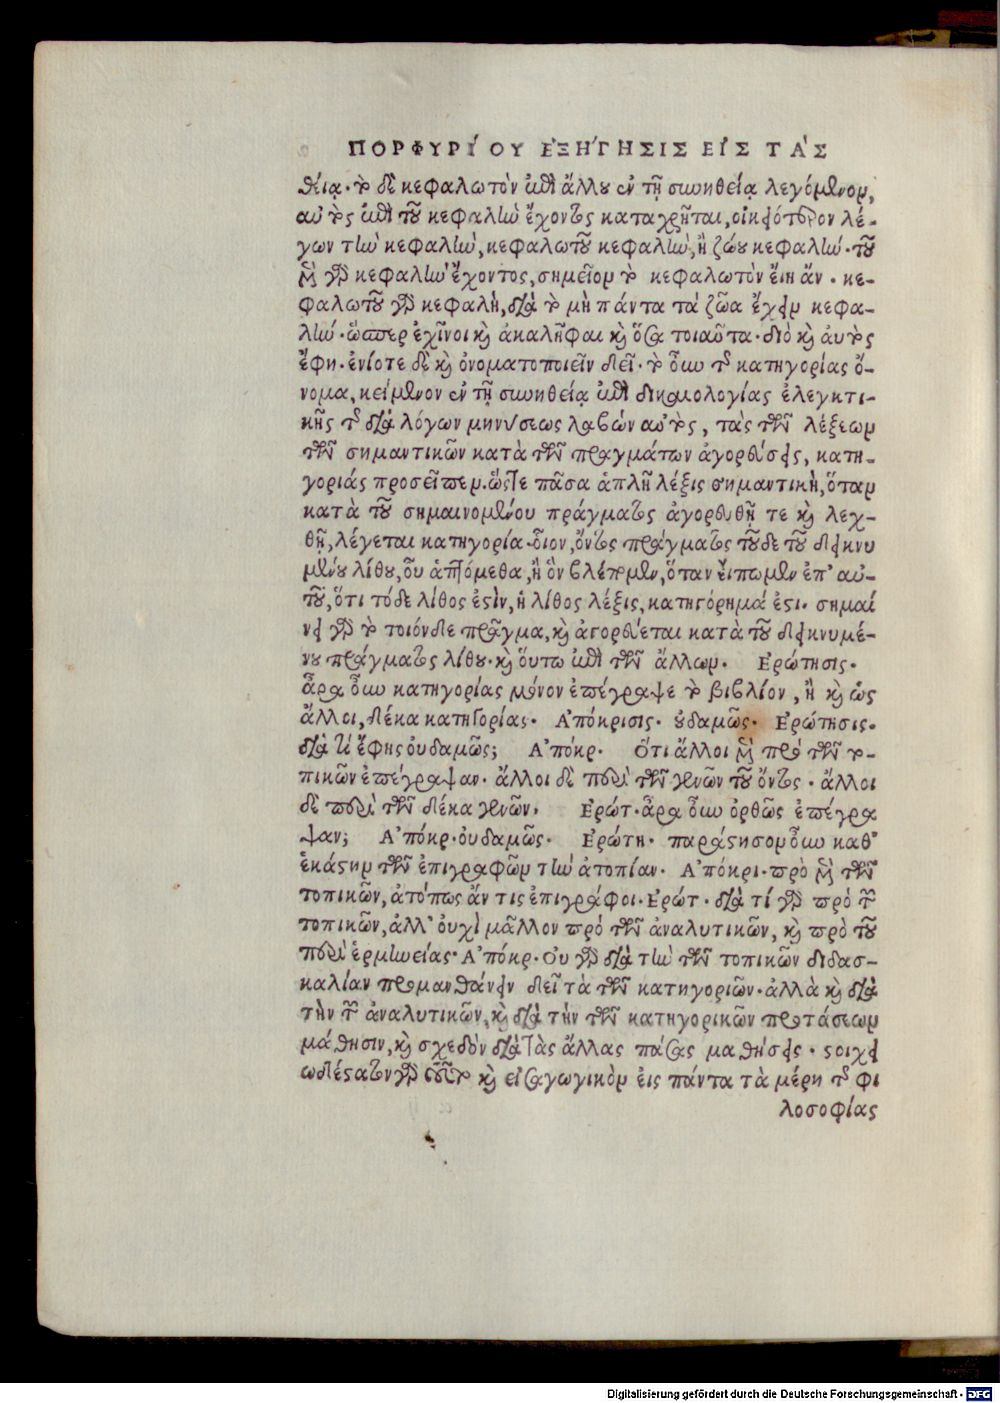 ΠΟΡΦΥΡΙ´ΟΥ ΕΞΗΓΗΣΙΣ ΕΙΣ ΤΑΣ
θείᾳ· τὸ δὲ κεφαλωτὸν ἐπὶ ἄλλου ἐν τῇ συνηθείᾳ λεγόμενον,
αὐτὸς ἐπὶ τοῦ κεφαλὴν ἔχοντος καταχρῆται, οἰκειότερον λέ-
γων τὴν κεφαλὴν, κεφαλωτοῦ κεφαλὴν, ἢ ζώου κεφαλήν· τοῦ
μὲν γὰρ κεφαλὴν ἔχοντος, σημεῖον τὸ κεφαλωτὸν εἴη ἄν· κε-
φαλωτοῦ γὰρ κεφαλὴ, διὰ τὸ μὴ πάντα τὰ ζῶα ἔχειν κεφα-
λήν· ὥσπερ ἐχῖνοι καὶ ἀκαλῆφαι καὶ ὅσα τοιαῦτα· διὸ καὶ ἀυτὸς
ἔφη· ἐνίοτε δὲ καὶ ὀνοματοποιεῖν δεῖ· τὸ οὖν τῆς κατηγορίας ὄ-
νομα, κείμενον ἐν τῇ συνηθείᾳ ἐπὶ δικαιολογίας ἐλεγκτι-
κῆς τῆς διὰ λόγων μηνύσεως λαβὼν αὐτὸς, τὰς τῶν λέξεων
τῶν σημαντικῶν κατὰ τῶν πραγμάτων ἀγορεύσεις, κατη-
γορίας προσεῖπεν. ὥστε πᾶσα ἁπλῆ λέξις σημαντικὴ, ὅταν
κατὰ τοῦ σημαινομένου πράγματος ἀγορευθῇ τε καὶ λεχ-
θῇ, λέγεται κατηγορία· οἷον, ὄντος πράγματος τοῦδε τοῦ δεικνυ
μένου λίθου, οὗ ἁπτόμεθα, ἢ ὃν βλέπομεν, ὅταν εἴπωμεν ἐπ' αὐ-
τοῦ, ὅτι τόδε λίθος ἐστὶν, ἡ λίθος λέξις, κατηγόρημά ἐστι. σημαί
νει γὰρ τὸ τοιόνδε πρᾶγμα, καὶ ἀγορεύεται κατὰ τοῦ δεικνυμέ-
νου πράγματος λίθου· καὶ ὅυτω ἐπὶ τῶν ἄλλων. Ερώτησις.
ἆρα οὖν κατηγορίας μόνον ἐπέγραψε τὸ βιβλίον, ἢ καὶ ὡς
ἄλλοι, δέκα κατηγορίας· Α'πόκρισις. οὐδαμῶς. Ερώτησις.
διὰ τί ἔφης οὐδαμῶς; Α'πόκρ. Οτι ἄλλοι μὲν πρὸ τῶν το-
πικῶν ἐπέγραψαν. ἄλλοι δὲ περὶ τῶν γενῶν τοῦ ὄντος. ἄλλοι
δὲ περὶ τῶν δέκα γενῶν. Ερώτ. ἆρα οὖν ὀρθῶς ἐπέγρα
ψαν; Α'πόκρ. οὐδαμῶς. Ερώτη. παράστησον οὖν καθ'
ἑκάστην τῶν ἐπιγραφῶν τὴν ἀτοπίαν. Α'πόκρι. πρὸ μὲν τῶν
τοπικῶν, ἀτόπως ἄν τις ἐπιγράφοι. Ερώτ. διὰ τί γὰρ πρὸ τῶν
τοπικῶν, ἀλλ' ὀυχὶ μᾶλλον πρὸ τῶν ἀναλυτικῶν, καὶ πρὸ τοῦ
περὶ ἑρμηνείας· Α'πόκρ. Ου γὰρ διὰ τὴν τῶν τοπικῶν διδασ-
καλίαν προμανθάνειν δεῖ τὰ τῶν κατηγοριῶν. ἀλλὰ καὶ διὰ
τὴν τῶν ἀναλυτικῶν, καὶ διὰ τὴν τῶν κατηγορικῶν προτάσεων
μάθησιν, καὶ σχεδὸν διὰ τὰς ἄλλας πάσας μαθήσεις. στοιχει
ωδέστατον γὰρ τοῦτο καὶ εἰσαγωγικὸν ἐις πάντα τὰ μέρη τῆς φι
λοσοφίας
Digitalisierung gefördert durch die Deutsche Forschungsgemeinschaft - DFG